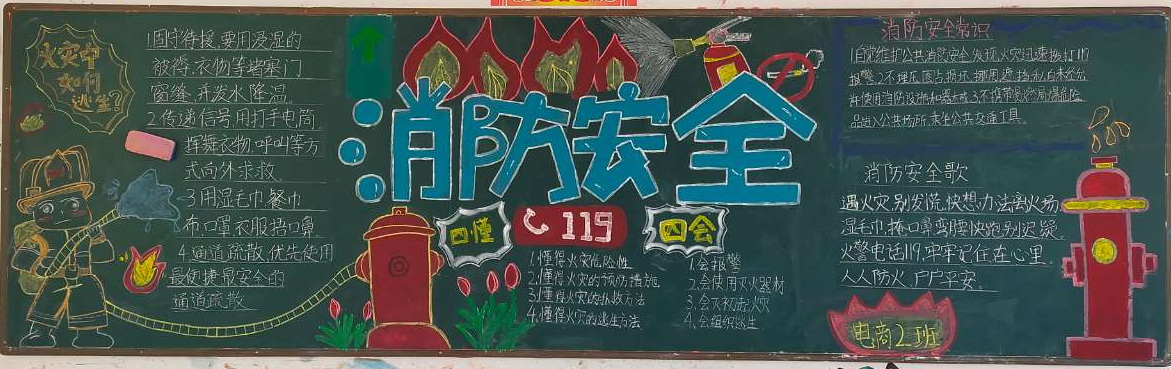 火灾中
如何
逃生?
1固守待援,要用浸湿的
被褥,衣物等堵塞门
窗缝,并发水降温,
2.传递信号,用打手电筒
挥舞衣物,呼叫等方
式向外求救.
3用湿毛巾餐巾
布口罩衣服捂口鼻
4.通道疏散,优先使用
最便捷最安全的
通道疏散
消防安全
四懂
119
四会
1.懂得火灾危险性
2.懂得火灾的预防措施.
3.懂得火灾的扑救方法
4.懂得火灾的逃生方法
1.会报警
2.会使用灭火器材
3.会灭初起火灾
4.会组织逃生
消防安全常识
1自觉维护公共消防安全,发现火灾迅速拨打119
报警.2.不埋压圈占损坏挪用遮挡私自未经允
许使用消防设施和器材.3.不携带易燃易爆危险
品进入公共场所,乘坐公共交通工具.
消防安全歌
遇火灾,别发慌,快想办法离火场
湿毛巾,掩口鼻,弯腰快跑别迟疑.
火警电话119,牢牢记住在心里.
人人防火,户户平安.
电商2班